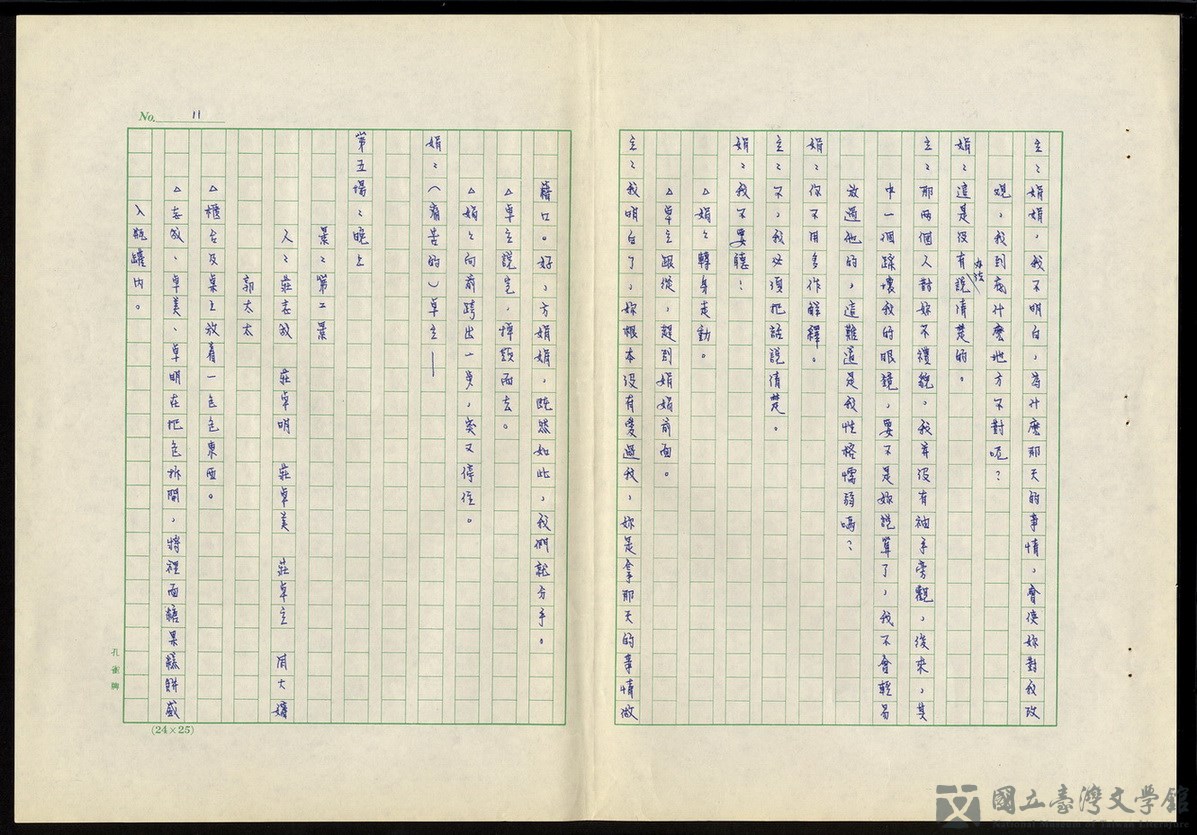 立：娟娟，我不明白，為什麼那天的事情，會使妳對我改
觀，我到底什麼地方不對呢？
娟：這是沒有办法說清楚的。
立：那兩個人對妳不禮貌，我並沒有袖手旁觀，後來，其
中一個踩壞我的眼鏡，要不是妳說算了，我不會輕易
放過他的，這難道是我性格懦弱嗎？
娟：你不用多作解釋。
立：不，我必須把話說清楚。
娟：我不要聽！
△娟娟轉身走動。
△卓立跟從，趕到娟娟前面。
立：我明白了，妳根本沒有愛過我，妳是拿那天的事情做
No. 11
藉口。好，方娟娟，既然如此，我們就分手。
△卓立說完，掉頭而去。
△娟娟向前跨出一步，突又停住。
娟：（痛苦的）卓立——
第五場：晚上
景：第二景
人：莊志成 莊卓明 莊卓美 莊卓立 周大嬸
郭太太
△櫃台及桌上放着一包包東西。
△志成、卓美、卓明在把包拆開，將裡面糖果糕餅盛
入瓶罐內。
孔雀牌
(24×25)
國立臺灣文學館
National Museum of Taiwan Literature